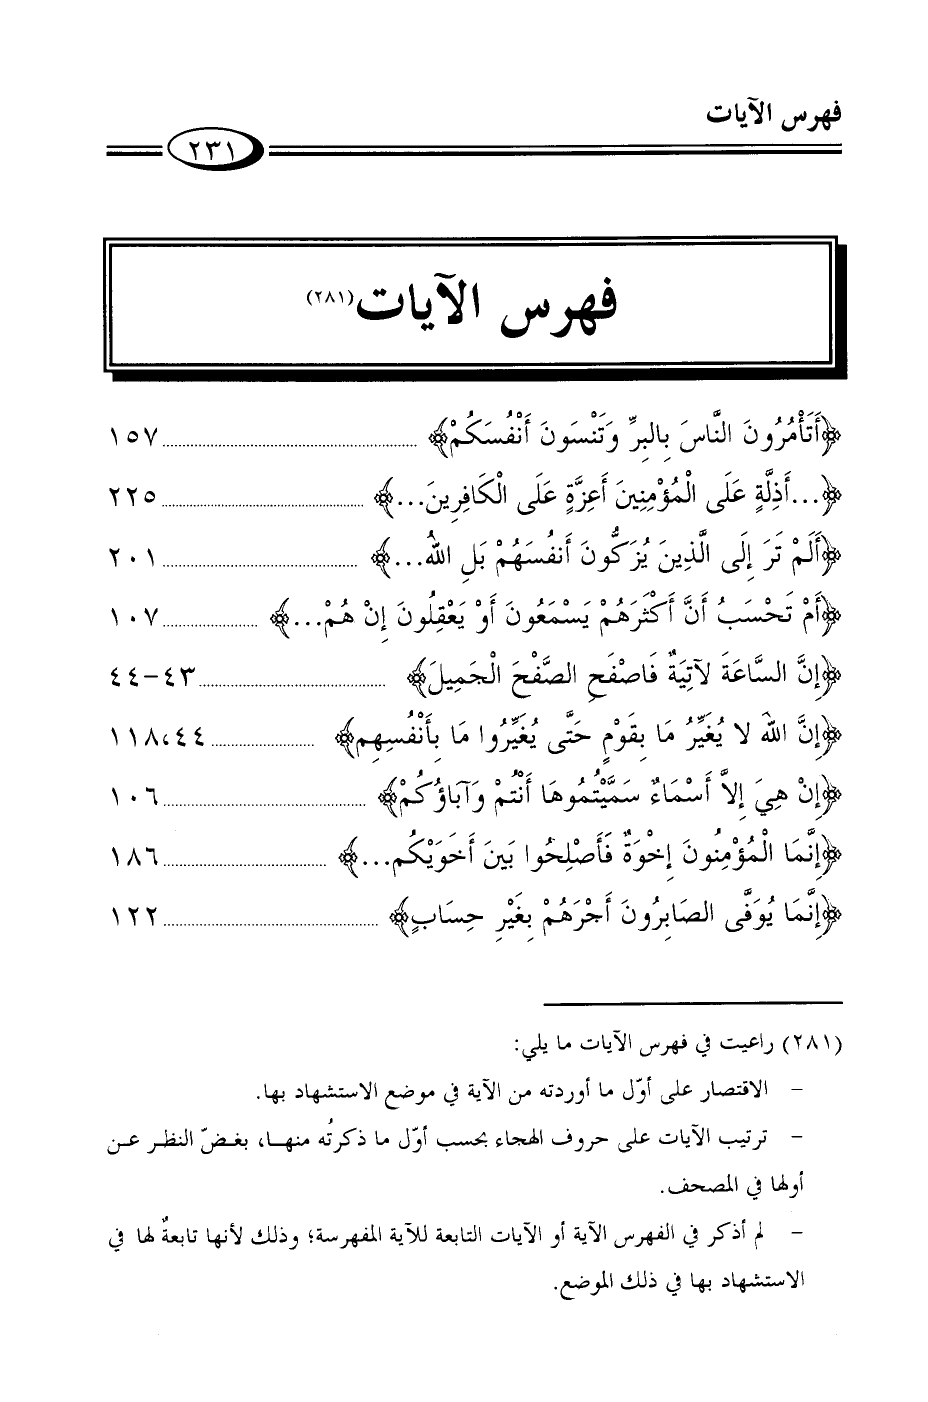 فهرس الآيات
٢٣١
فهرس الآيات(٢٨١)
﴿أَتَأْمُرُونَ النَّاسَ بِالبِرِّ وَتَنْسَونَ أَنْفُسَكُمْ﴾ ........ ١٥٧
﴿...أَذِلَّةٍ عَلَى الْمُؤْمِنِينَ أَعِزَّةٍ عَلَى الْكَافِرِينَ...﴾ ........ ٢٢٥
﴿أَلَمْ تَرَ إِلَى الَّذِينَ يُزَكُّونَ أَنفُسَهُمْ بَلِ اللهُ...﴾ ........ ٢٠١
﴿أَمْ تَحْسَبُ أَنَّ أَكْثَرَهُمْ يَسْمَعُونَ أَوْ يَعْقِلُونَ إِنْ هُمْ...﴾ ........ ١٠٧
﴿إِنَّ السَّاعَةَ لآتِيَةٌ فَاصْفَحِ الصَّفْحَ الْجَمِيلَ﴾ ........ ٤٣-٤٤
﴿إِنَّ اللهَ لا يُغَيِّرُ مَا بِقَوْمٍ حَتَّى يُغَيِّرُوا مَا بِأَنْفُسِهِم﴾ ........ ٤٤،١١٨
﴿إِنْ هِيَ إِلاَّ أَسْمَاءٌ سَمَّيْتُمُوهَا أَنْتُمْ وَآبَاؤُكُمْ﴾ ........ ١٠٦
﴿إِنَّمَا الْمُؤْمِنُونَ إِخْوَةٌ فَأَصْلِحُوا بَيْنَ أَخَوَيْكُم...﴾ ........ ١٨٦
﴿إِنَّمَا يُوَفَّى الصَابِرُونَ أَجْرَهُمْ بِغَيْرِ حِسَابٍ﴾ ........ ١٢٢
(٢٨١) راعيت في فهرس الآيات ما يلي:
– الاقتصار على أوّل ما أوردته من الآية في موضع الاستشهاد بها.
– ترتيب الآيات على حروف الهجاء بحسب أوّل ما ذكرتُه منهـا، بغضّ النظر عـن
أولها في المصحف.
– لم أذكر في الفهرس الآية أو الآيات التابعة للآية المفهرسة؛ وذلك لأنها تابعةٌ لها في
الاستشهاد بها في ذلك الموضع.